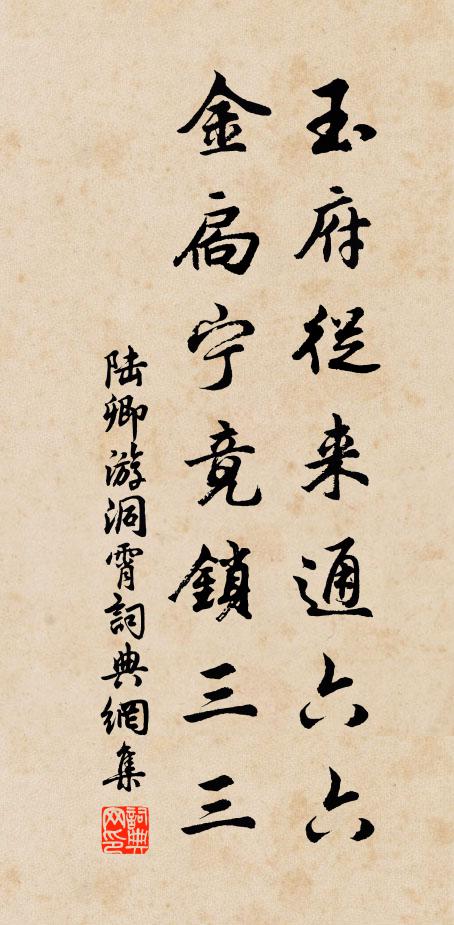 玉府從来通六六
金扃宁竟鎖三三
陆卿游洞霄詞典網集
詞典网印